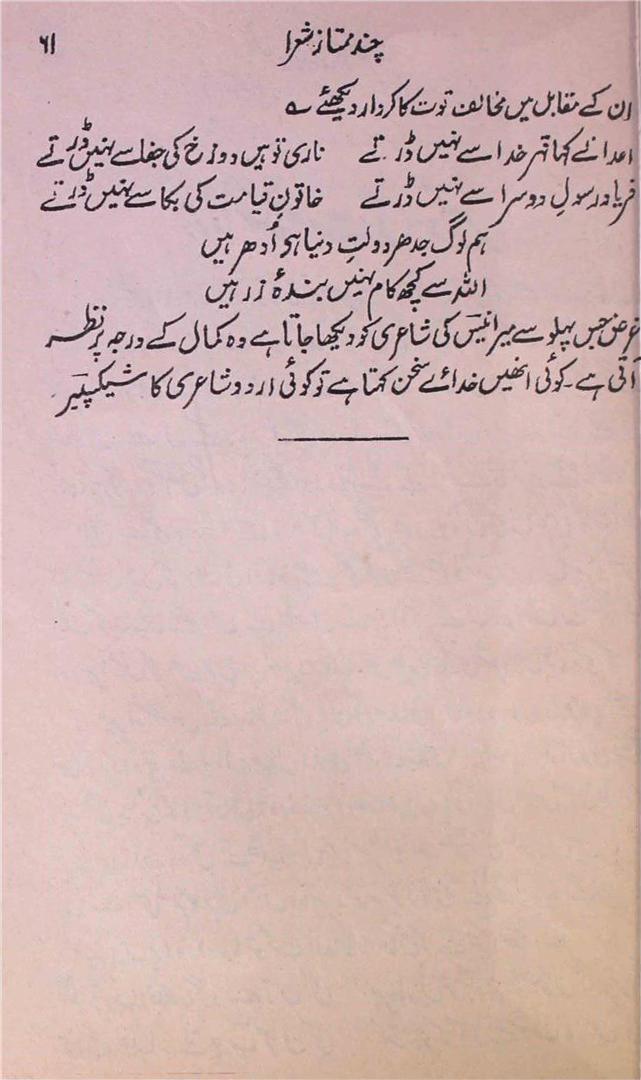 چند ممتاز شعرا ۶۱
ان کے مقابل میں مخالف قوت کا کردار دیکھئے ؎
اعدا نے کہا قہرِ خدا سے نہیں ڈرتے ناری تو ہیں دوزخ کی جفا سے نہیں ڈرتے
فریادِ رسولِ دوسرا سے نہیں ڈرتے خاتونِ قیامت کی بکا سے نہیں ڈرتے
ہم لوگ جدھر دولتِ دنیا ہو اُدھر ہیں
اللہ سے کچھ کام نہیں بندۂ زر ہیں
غرض جس پہلو سے میر انیسؔ کی شاعری کو دیکھا جاتا ہے وہ کمال کے درجہ پر نظر
آتی ہے۔ کوئی انھیں خدائے سخن کہتا ہے تو کوئی اردو شاعری کا شیکسپیر۔